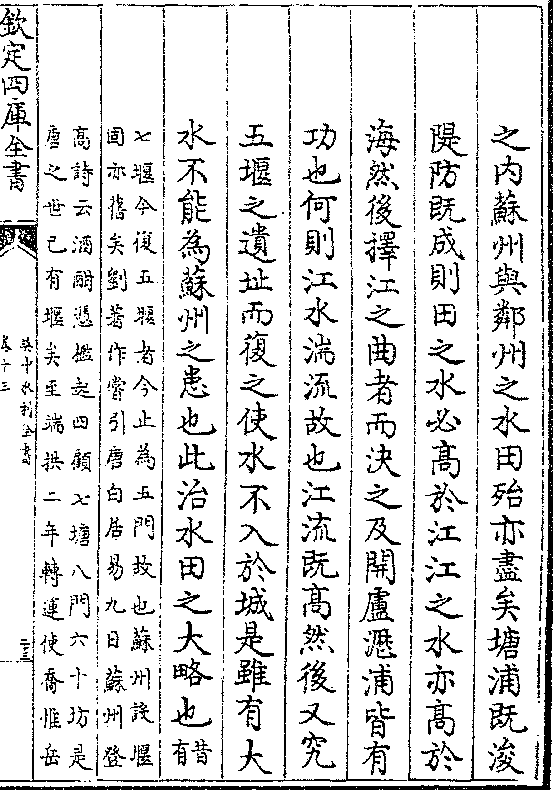 之内蘇州與鄰州之水田殆亦盡矣塘浦既浚
隄防既成則田之水必髙於江江之水亦髙於
海然後擇江之曲者而決之及開盧瀝浦皆有
功也何則江水湍流故也江流既髙然後又究
五堰之遺址而復之使水不入於城是雖有大
水不能為蘇州之患也此治水田之大略也昔有
七堰今復五堰者今止為五門故也蘇州設堰
固亦舊矣劉著作嘗引唐白居易九日蘇州登
髙詩云酒酣憑檻起四顧七塘八門六十坊是
唐之世已有堰矣至端拱二年轉運使喬惟岳
欽定四庫全書
吳中水利全書
卷十三